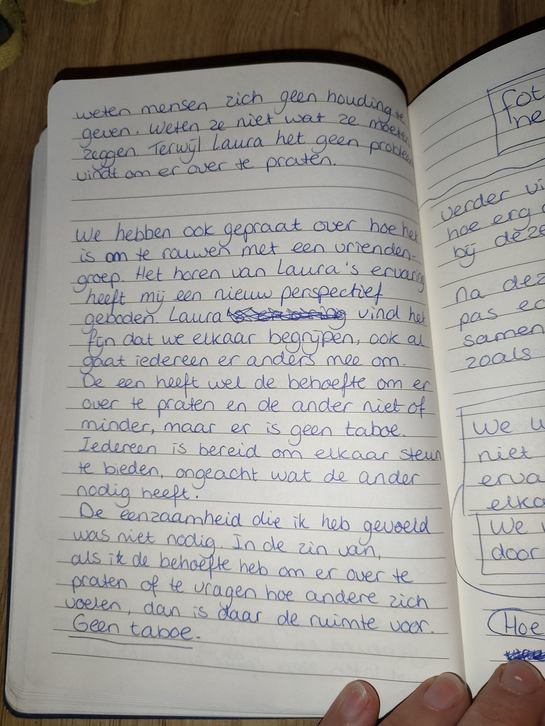 weten mensen zich geen houding te
geven. Weten ze niet wat ze moeten
zeggen. Terwijl Laura het geen probleem
vindt om er over te praten.
We hebben ook gepraat over hoe het
is om te rouwen met een vrienden-
groep. Het horen van Laura's ervaring
heeft mij een nieuw perspectief
geboden. Laura vind het
fijn dat we elkaar begrijpen, ook al
gaat iedereen er anders mee om.
De een heeft wel de behoefte om er
over te praten en de ander niet of
minder, maar er is geen taboe.
Iedereen is bereid om elkaar steun
te bieden, ongeacht wat de ander
nodig heeft.
De eenzaamheid die ik heb gevoeld
was niet nodig. In de zin van,
als ik de behoefte heb om er over te
praten of te vragen hoe andere zich
voelen, dan is daar de ruimte voor.
Geen taboe.
fot
he
verder vi
hoe erg
bij deze
Na dez
pas ec
samen
zoals
We w
niet
erva
elka
We
door
Hoe